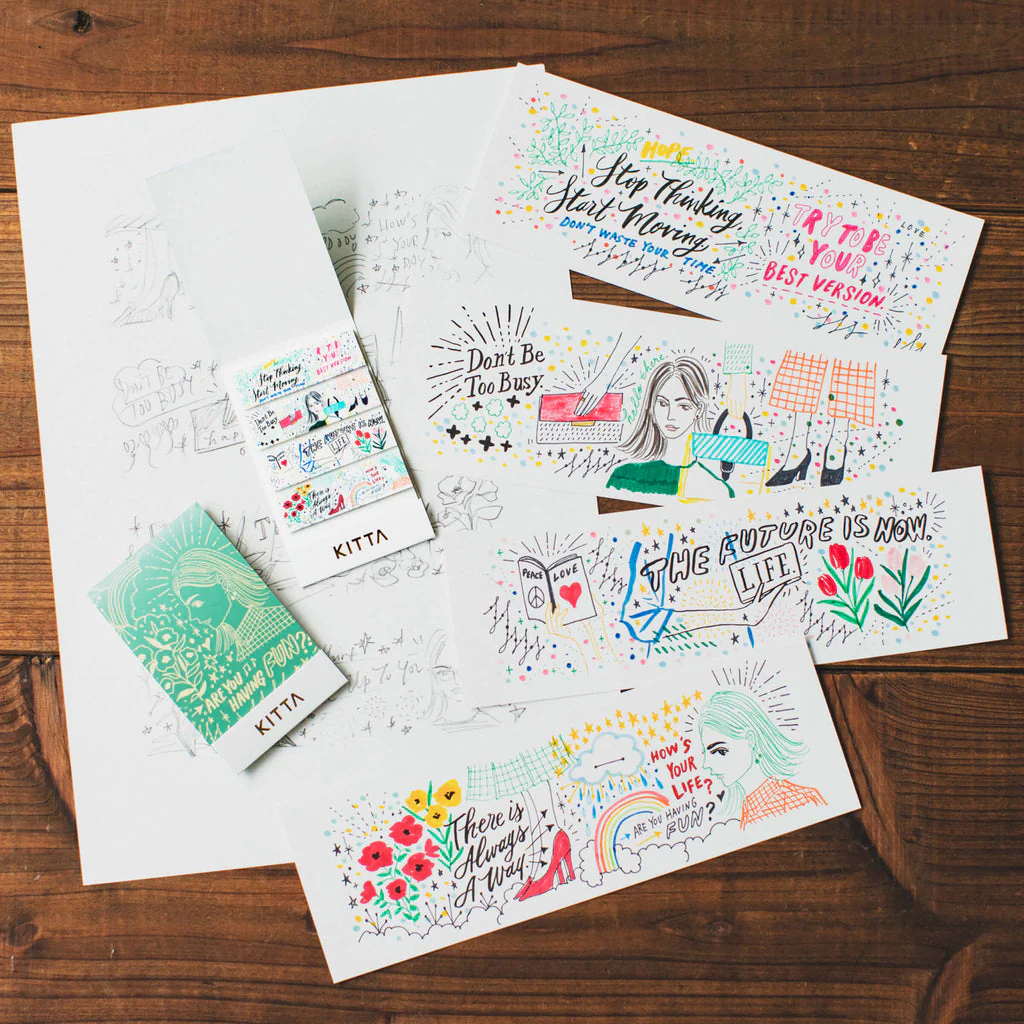 HOPE
Stop Thinking,
Start Moving,
DON'T WASTE YOUR TIME
TRY TO BE
YOUR
BEST VERSION.
LOVE
Don't Be
Too Busy.
PEACE
LOVE
THE FUTURE IS NOW.
LIFE.
There is
Always
A Way.
HOW'S
YOUR
LIFE?
ARE YOU HAVING
FUN?
HOW'S
YOUR
DAY?
DON'T BE
TOO BUSY
UP TO YOU
Stop Thinking,
Start Moving,
DON'T WASTE YOUR TIME
BEST VERSION.
Don't Be
Too Busy
THE FUTURE IS NOW.
LIFE
There is
Always
A Way.
KITTA
ARE YOU
HAVING
FUN?
KITTA